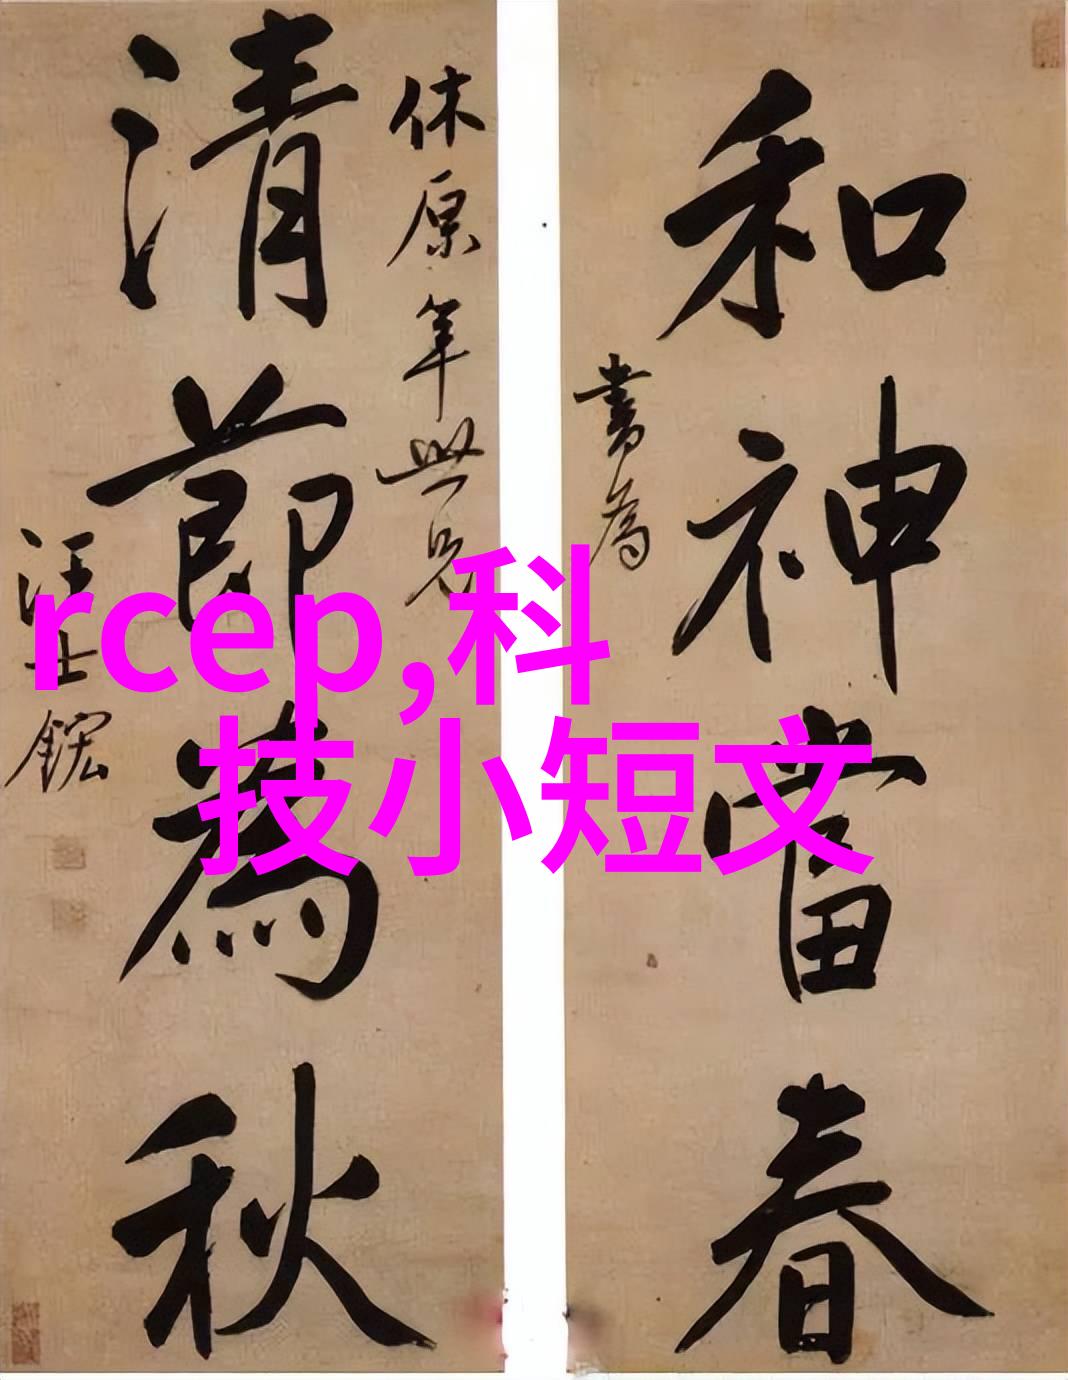 和神當春
書為
休原年世兄
清節為秋
汪士鋐
rcep,科
技小短文